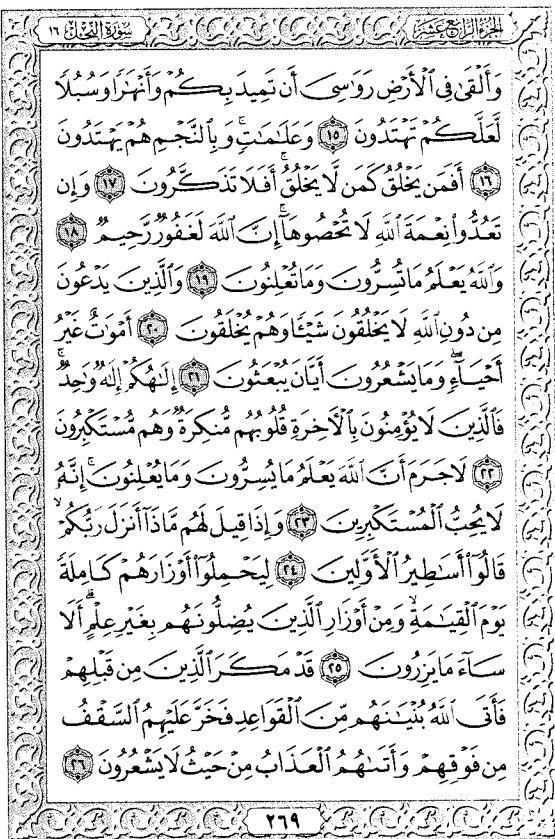 الجزء الرابع عشر
سورة النحل ١٦
وَأَلْقَىٰ فِى ٱلْأَرْضِ رَوَٰسِىَ أَن تَمِيدَ بِكُمْ وَأَنْهَٰرًا وَسُبُلًا
لَّعَلَّكُمْ تَهْتَدُونَ ١٥ وَعَلَٰمَٰتٍۚ وَبِٱلنَّجْمِ هُمْ يَهْتَدُونَ
١٦ أَفَمَن يَخْلُقُ كَمَن لَّا يَخْلُقُۗ أَفَلَا تَذَكَّرُونَ ١٧ وَإِن
تَعُدُّوا۟ نِعْمَةَ ٱللَّهِ لَا تُحْصُوهَآۗ إِنَّ ٱللَّهَ لَغَفُورٌ رَّحِيمٌ ١٨
وَٱللَّهُ يَعْلَمُ مَا تُسِرُّونَ وَمَا تُعْلِنُونَ ١٩ وَٱلَّذِينَ يَدْعُونَ
مِن دُونِ ٱللَّهِ لَا يَخْلُقُونَ شَيْـًٔا وَهُمْ يُخْلَقُونَ ٢٠ أَمْوَٰتٌ غَيْرُ
أَحْيَآءٍۖ وَمَا يَشْعُرُونَ أَيَّانَ يُبْعَثُونَ ٢١ إِلَٰهُكُمْ إِلَٰهٌ وَٰحِدٌۚ
فَٱلَّذِينَ لَا يُؤْمِنُونَ بِٱلْأَخِرَةِ قُلُوبُهُم مُّنكِرَةٌ وَهُم مُّسْتَكْبِرُونَ
٢٢ لَا جَرَمَ أَنَّ ٱللَّهَ يَعْلَمُ مَا يُسِرُّونَ وَمَا يُعْلِنُونَۚ إِنَّهُۥ
لَا يُحِبُّ ٱلْمُسْتَكْبِرِينَ ٢٣ وَإِذَا قِيلَ لَهُم مَّاذَآ أَنزَلَ رَبُّكُمْۙ
قَالُوٓا۟ أَسَٰطِيرُ ٱلْأَوَّلِينَ ٢٤ لِيَحْمِلُوٓا۟ أَوْزَارَهُمْ كَامِلَةً
يَوْمَ ٱلْقِيَٰمَةِۙ وَمِنْ أَوْزَارِ ٱلَّذِينَ يُضِلُّونَهُم بِغَيْرِ عِلْمٍۗ أَلَا
سَآءَ مَا يَزِرُونَ ٢٥ قَدْ مَكَرَ ٱلَّذِينَ مِن قَبْلِهِمْ
فَأَتَى ٱللَّهُ بُنْيَٰنَهُم مِّنَ ٱلْقَوَاعِدِ فَخَرَّ عَلَيْهِمُ ٱلسَّقْفُ
مِن فَوْقِهِمْ وَأَتَىٰهُمُ ٱلْعَذَابُ مِنْ حَيْثُ لَا يَشْعُرُونَ ٢٦
٢٦٩